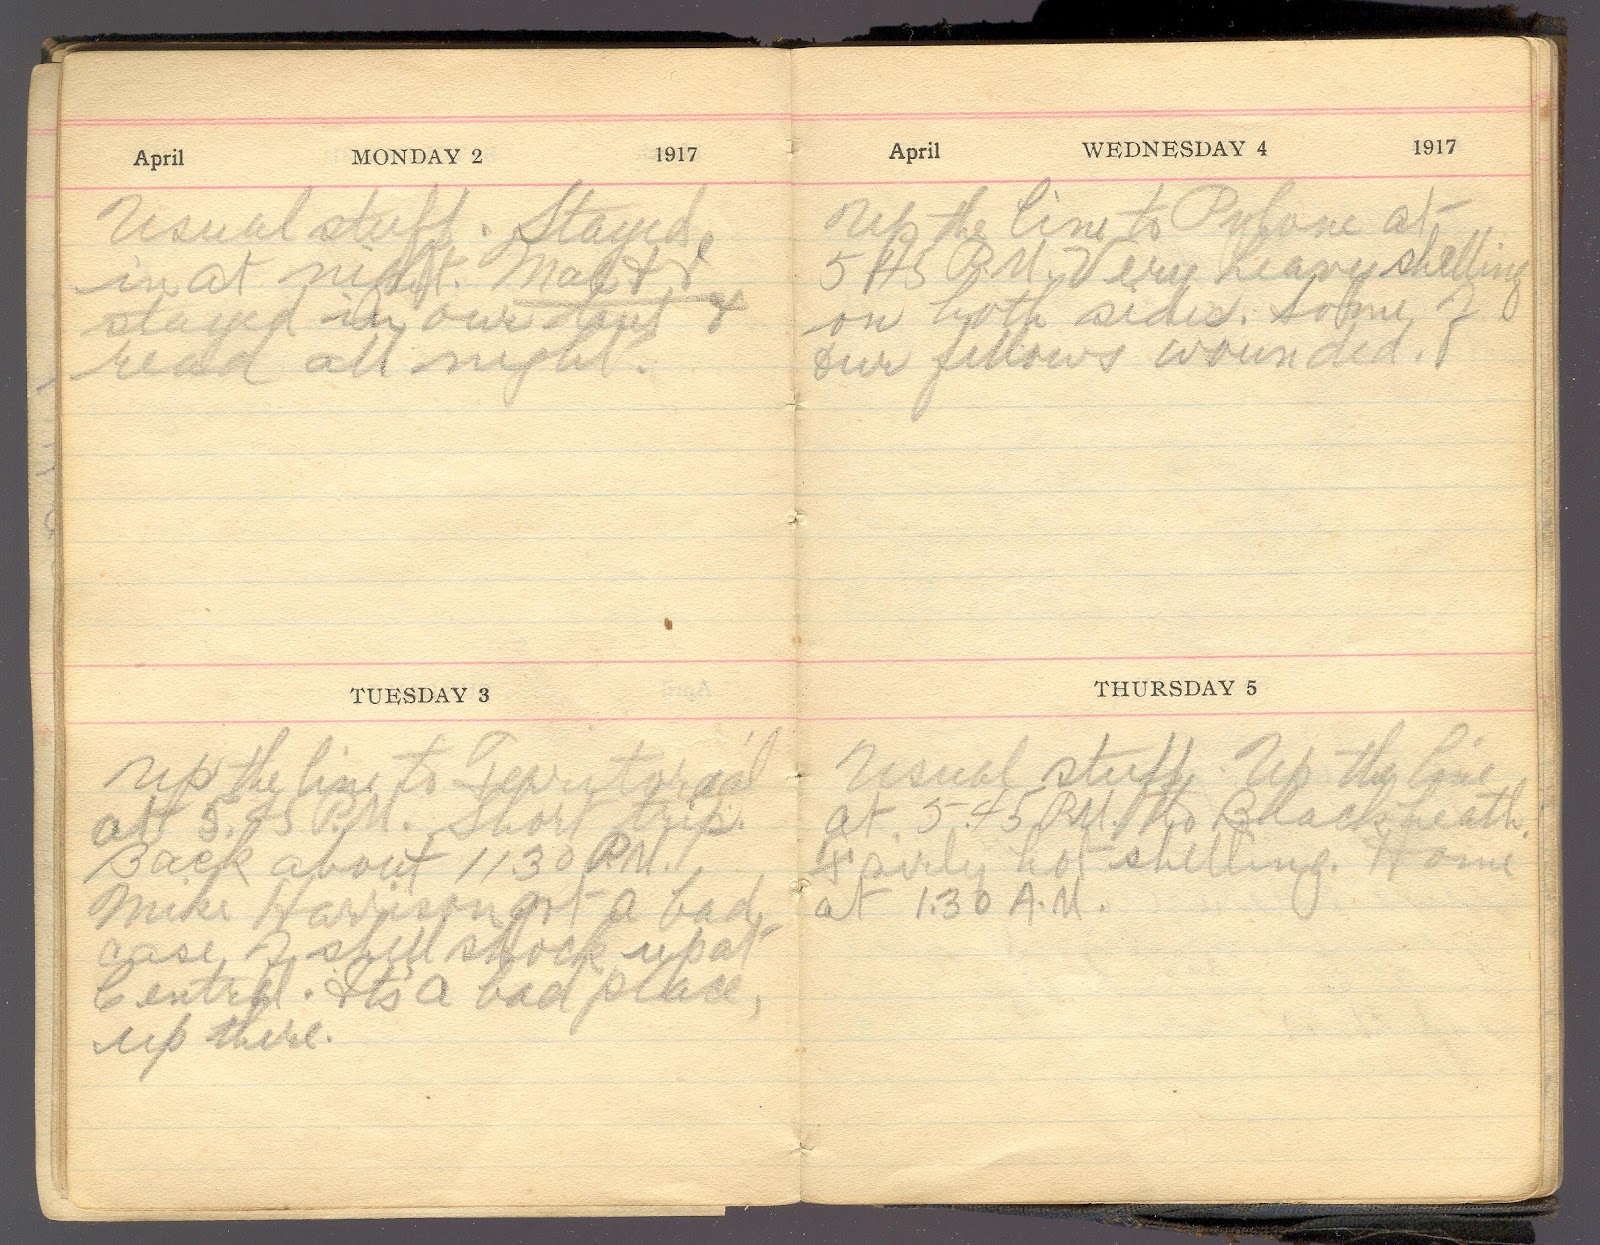 April MONDAY 2 1917
Usual stuff. Stayed
in at night. Mac & I
stayed in our &
read all night.
TUESDAY 3
Up the line to Territorial
at 5.45 P.M. Short trip.
Back about 11.30 P.M.
Mike Harrison got a bad
case of shell shock up at
Central. Its a bad place,
up there.
April WEDNESDAY 4 1917
Up the line to Pylone at
5 45 P.M. Very heavy shelling
on both sides. Some of
our fellows wounded.
THURSDAY 5
Usual stuff. Up the line
at 5.45 P.M. to Blackheath.
Fairly hot shelling. Home
at 1.30 A.M.